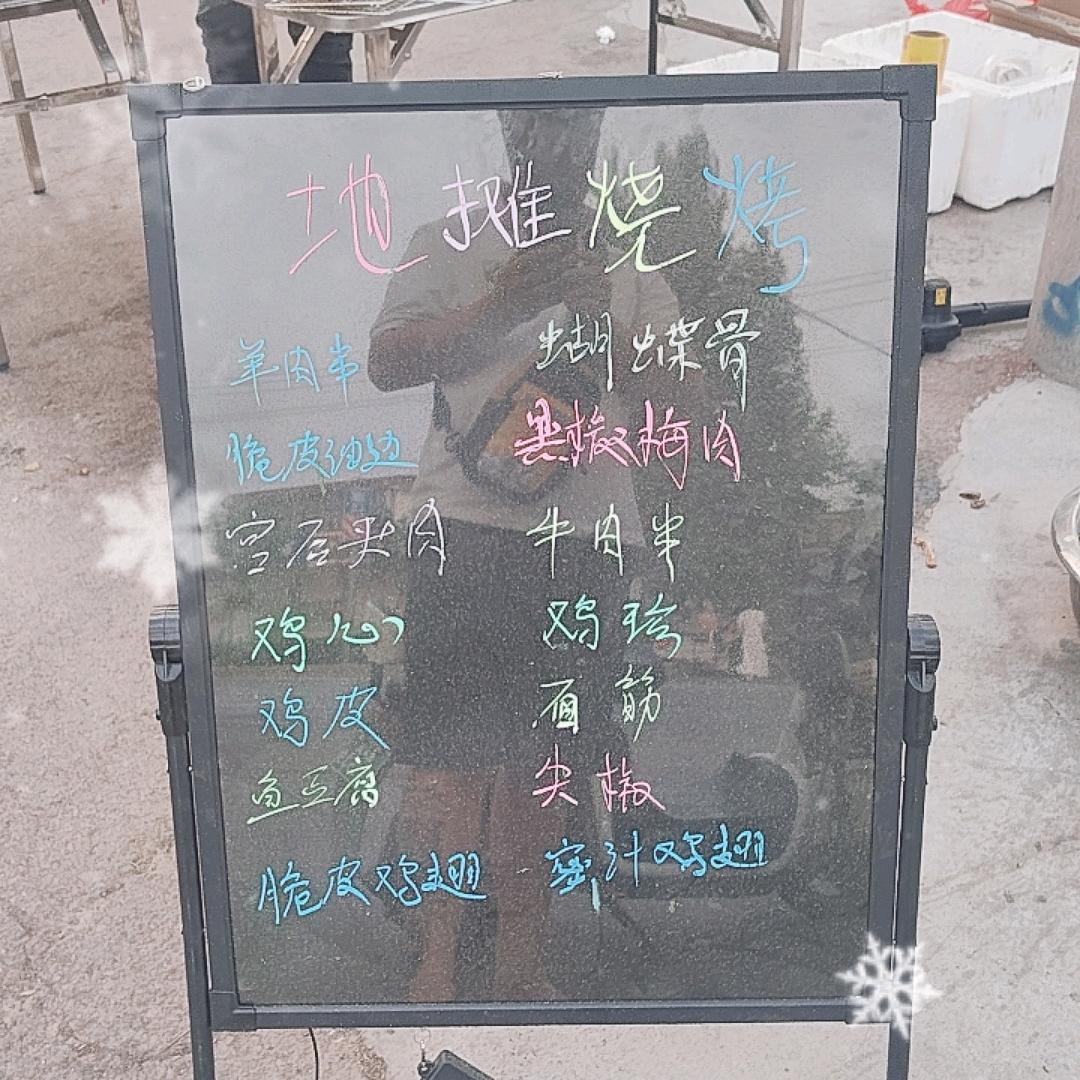 地摊烧烤
羊肉串
脆皮油边
宫后夹肉
鸡心
鸡皮
鱼豆腐
脆皮鸡翅
蝴蝶骨
黑椒梅肉
牛肉串
鸡珍
面筋
尖椒
蜜汁鸡翅